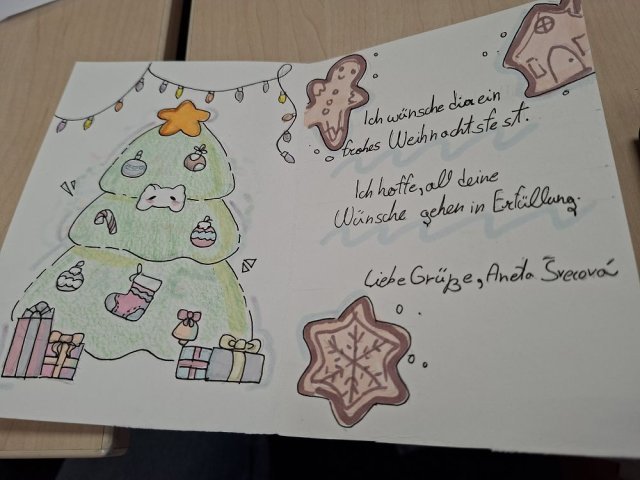 Ich wünsche dir ein
frohes Weihnachtsfest.
Ich hoffe, all deine
Wünsche gehen in Erfüllung.
Liebe Grüße, Aneta Švecová